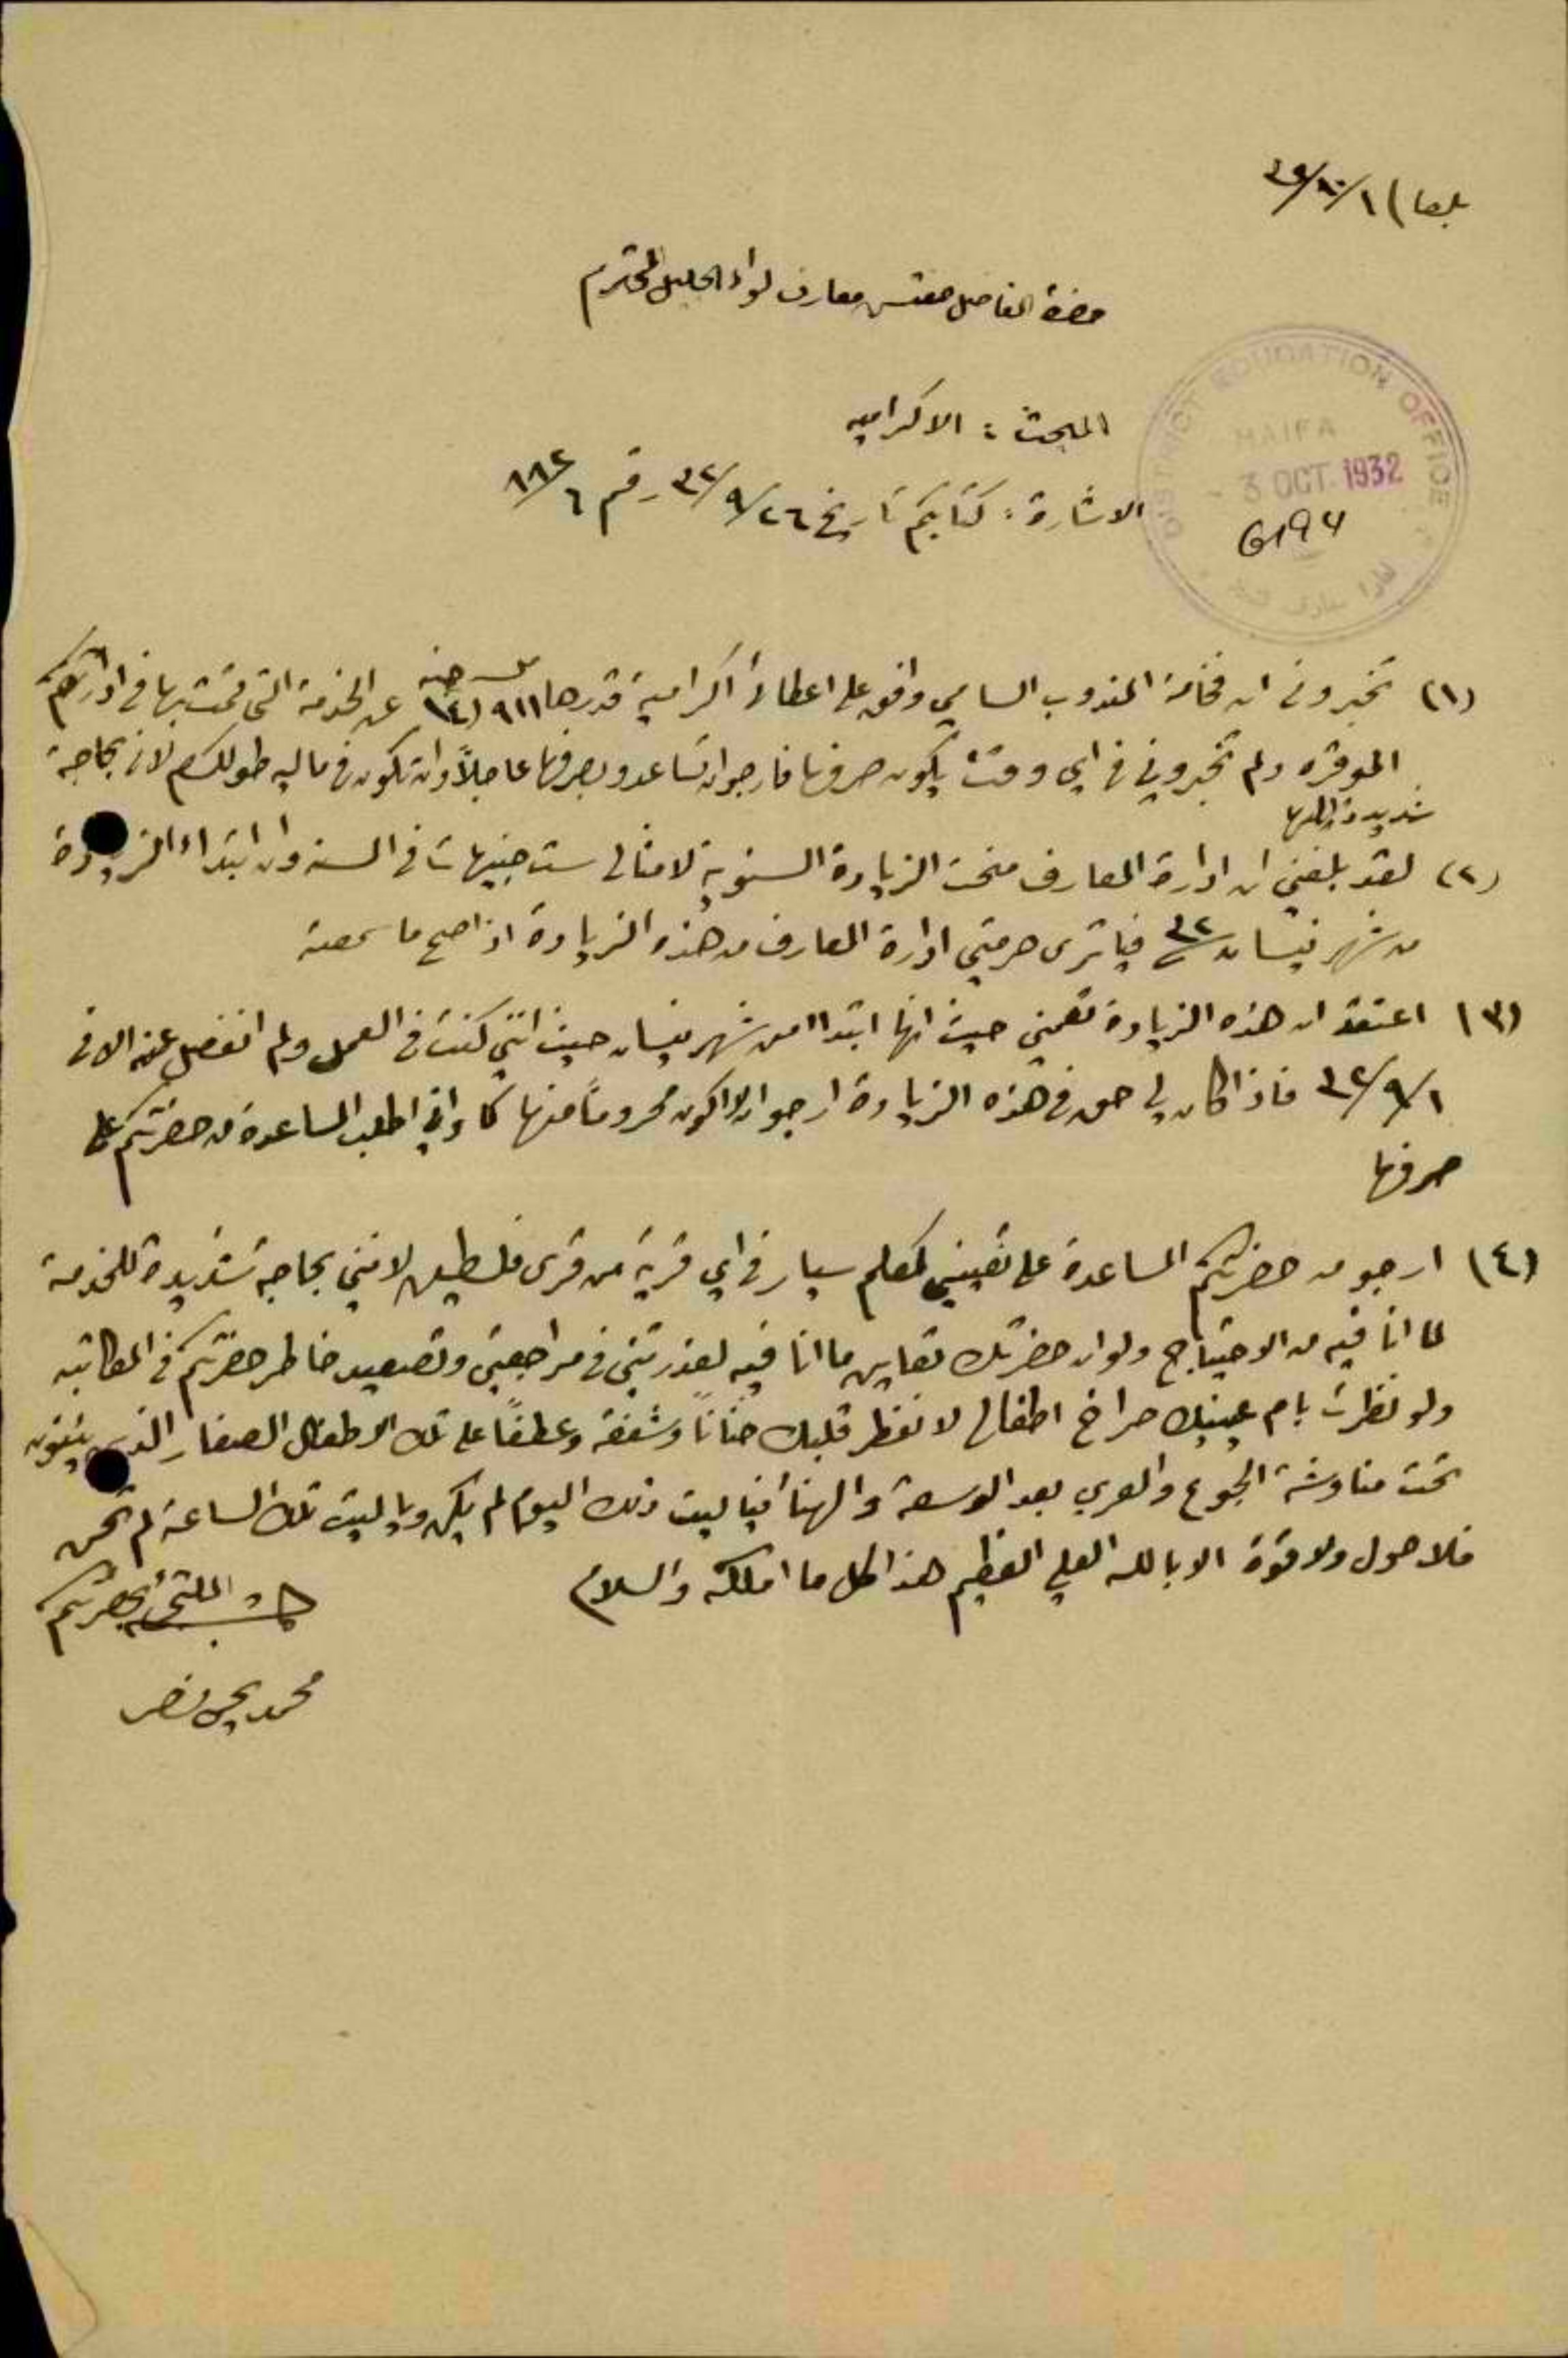 بلعا) ١/١٠/٣٢
حضرة الفاضل مفتش معارف لواء الجليل المحترم
المبحث : الاكراميه
الاشارة : كتابكم تاريخ ٢٦/٩/٣٢ رقم ٦/١١٢
DISTRICT EDUCATION OFFICE
HAIFA
- 3 OCT. 1932
6194
(١) تخبروني ان فخامة المندوب السامي وافق على اعطائي اكرامية قدرها ٩١١ مل ١٤ جنيه عن الخدمة التي قمت بها في ادارتكم
الموقره ولم تخبروني في اي وقت يكون صرفها فارجو ان تساعدو بصرفها عاجلاً وان تكون في ماليه طولكرم لاني بحاجة
شديدة اليها
(٢) لقد بلغني ان ادارة المعارف منحت الزيادة السنوية لامثالي ست جنيهات في السنه وان ابتداء الزيادة
من شهر نيسان ٣٢ فيا ترى حرمتني ادارة المعارف من هذه الزيادة اذا صح ما سمعته
(٣) اعتقد ان هذه الزيادة تعمني حيث انها ابتدا من شهر نيسان حيث انني كنت في العمل ولم انفصل عنه الا في
١/٩/٣٢ فاذا كان لي حق في هذه الزيادة ارجو ان لا اكون محروماً منها كما واني اطلب المساعدة من حضرتكم على
صرفها
(٤) ارجو من حضرتكم المساعدة على تعييني كمعلم سيار في اي قرية من قرى فلسطين لانني بحاجه شديدة للخدمة
لما انا فيه من الاحتياج ولو ان حضرتك تعاين ما انا فيه لعذرتني في مراجعتي وتصعيد خاطر حضرتكم في المكاتبه
ولو نظرت بام عينيك صراخ اطفالي لانفطر قلبك حناناً وشفقة وعطفاً على تلك الاطفال الصغار الذين يئنون
تحت مناوشة الجوع والعري بعد الوسعة والهنا فيا ليت ذلك اليوم لم يكن ويا ليت تلك الساعة لم تحن
فلا حول ولا قوة الا بالله العلي العظيم هذا كل ما املكه والسلام
الملتجئ لحضرتكم
محمد يحيى نصر